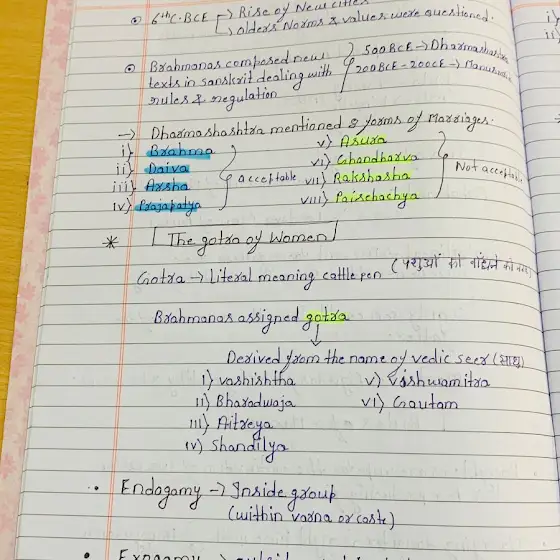 6thC.BCE → Rise of New cities
→ olders Norms & values were questioned.
Brahmanas composed new
texts in sanskrit dealing with
rules & regulation
500BCE → Dharmashastra
200BCE - 200CE →
→ Dharmashashtra mentioned 8 forms of Marriages.
i) Brahma
ii) Daiva
iii) Arsha
iv) Prajapatya
acceptable
v) Asura
vi) Ghandharva
vii) Rakshasha
viii) Paischachya
Not acceptable
* [The gotra of Women]
Gotra → Literal meaning cattle pen (पशुओं को बांधने
Brahmanas assigned gotra
↓
Derived from the name of vedic seer (साधु)
I) vashishtha
II) Bharadwaja
III) Aitreya
IV) Shandilya
V) Vishwamitra
VI) Gautam
Endogamy → Inside group
(within varna or caste)